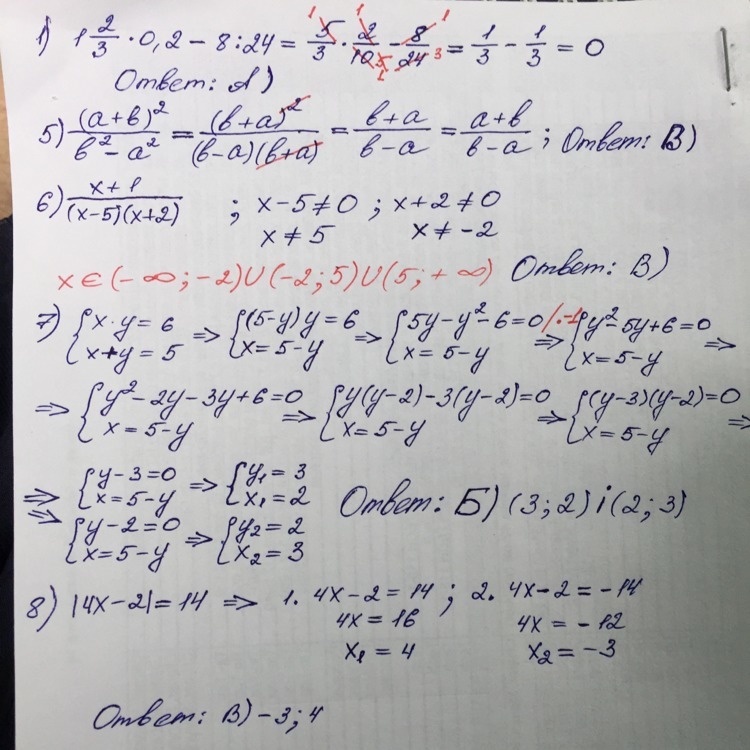 1) 1 2/3 · 0,2 − 8 : 24 = 5/3 · 2/10 − 8/24 = 1/3 − 1/3 = 0
Ответ: А)
5) (a+b)²/(b²−a²) = (b+a)²/((b−a)(b+a)) = (b+a)/(b−a) = (a+b)/(b−a) ; Ответ: В)
6) (x+1)/((x−5)(x+2)) ; x−5≠0 ; x+2≠0
x≠5 x≠−2
x∈(−∞;−2)∪(−2;5)∪(5;+∞) Ответ: В)
7) {x·y=6 ⇒ {(5−y)y=6 ⇒ {5y−y²−6=0 /:−1 ⇒ {y²−5y+6=0 ⇒
{x+y=5 {x=5−y {x=5−y {x=5−y
⇒ {y²−2y−3y+6=0 ⇒ {y(y−2)−3(y−2)=0 ⇒ {(y−3)(y−2)=0 ⇒
{x=5−y {x=5−y {x=5−y
⇒ {y−3=0 ⇒ {y₁=3
{x=5−y {x₁=2 Ответ: Б) (3;2) і (2;3)
⇒ {y−2=0 ⇒ {y₂=2
{x=5−y {x₂=3
8) |4x−2|=14 ⇒ 1. 4x−2=14 ; 2. 4x−2=−14
4x=16 4x=−12
x₁=4 x₂=−3
Ответ: В) −3; 4